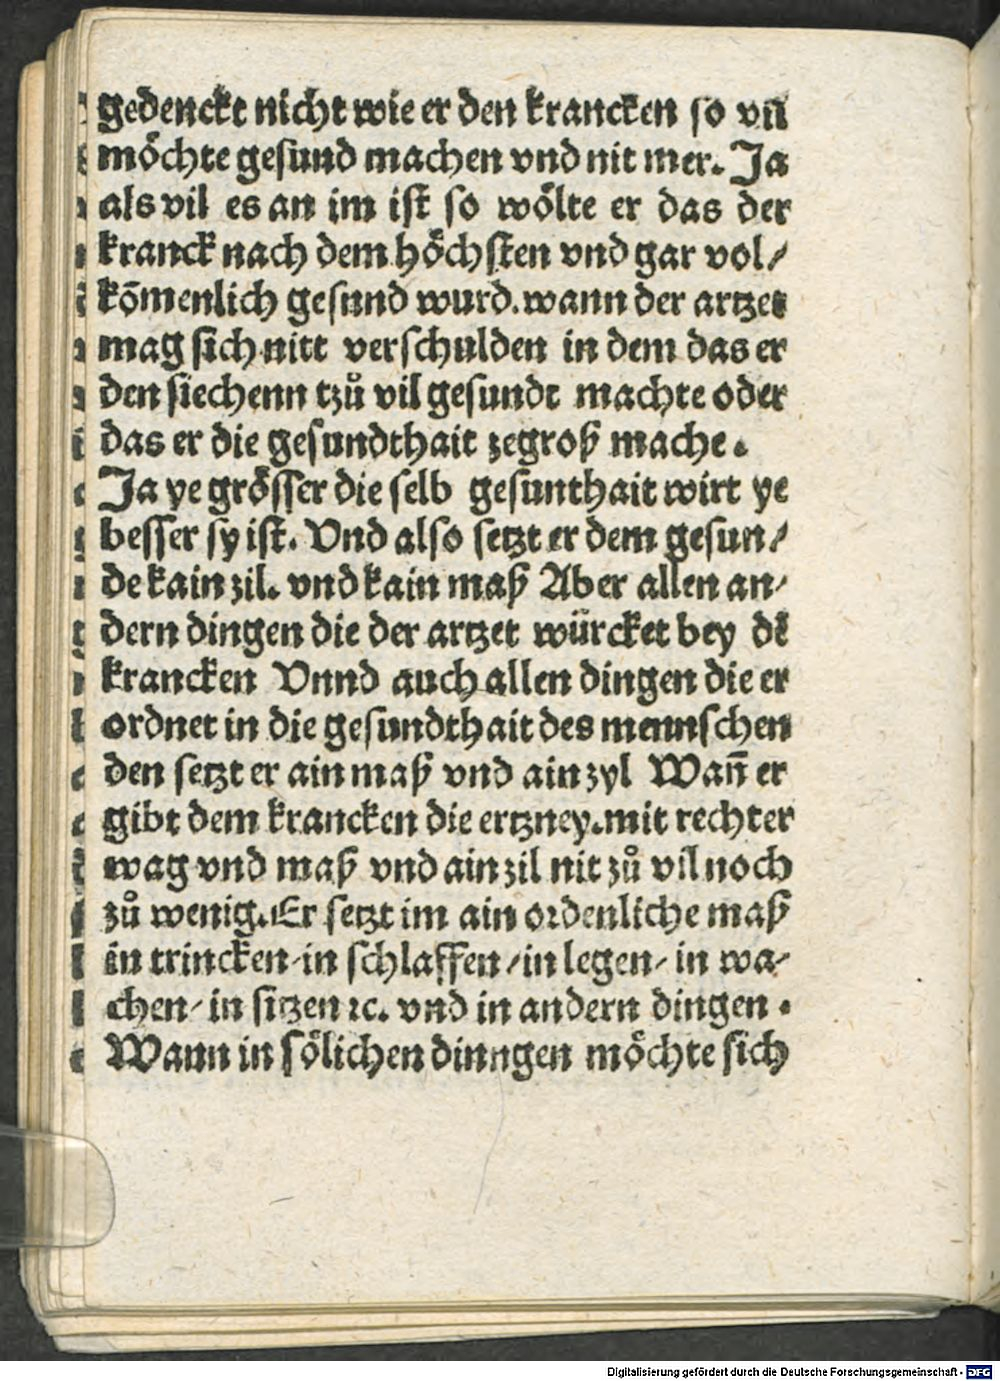 gedenckt nicht wie er den krancken so vil
möchte gesund machen vnd nit mer. Ja
als vil es an im ist so wölte er das der
kranck nach dem höchsten vnd gar vol/
kōmenlich gesund wurd. wann der artzet
mag sich nitt verschulden in dem das er
den siechenn tzů vil gesundt machte oder
das er die gesundthait zegroß mache.
Ja ye grösser die selb gesunthait wirt ye
besser sy ist. Vnd also setzt er dem gesun/
de kain zil. vnd kain maß Aber allen an/
dern dingen die der artzet würcket bey dē
krancken Vnnd auch allen dingen die er
ordnet in die gesundthait des mennschen
den setzt er ain maß vnd ain zyl Wañ er
gibt dem krancken die ertzney. mit rechter
wag vnd maß vnd ain zil nit zů vil noch
zů wenig. Er setzt im ain ordenliche maß
in trincken/ in schlaffen/ in legen/ in wa/
chen/ in sitzen ꝛc. vnd in andern dingen.
Wann in sölichen dinngen möchte sich
Digitalisierung gefördert durch die Deutsche Forschungsgemeinschaft - DFG